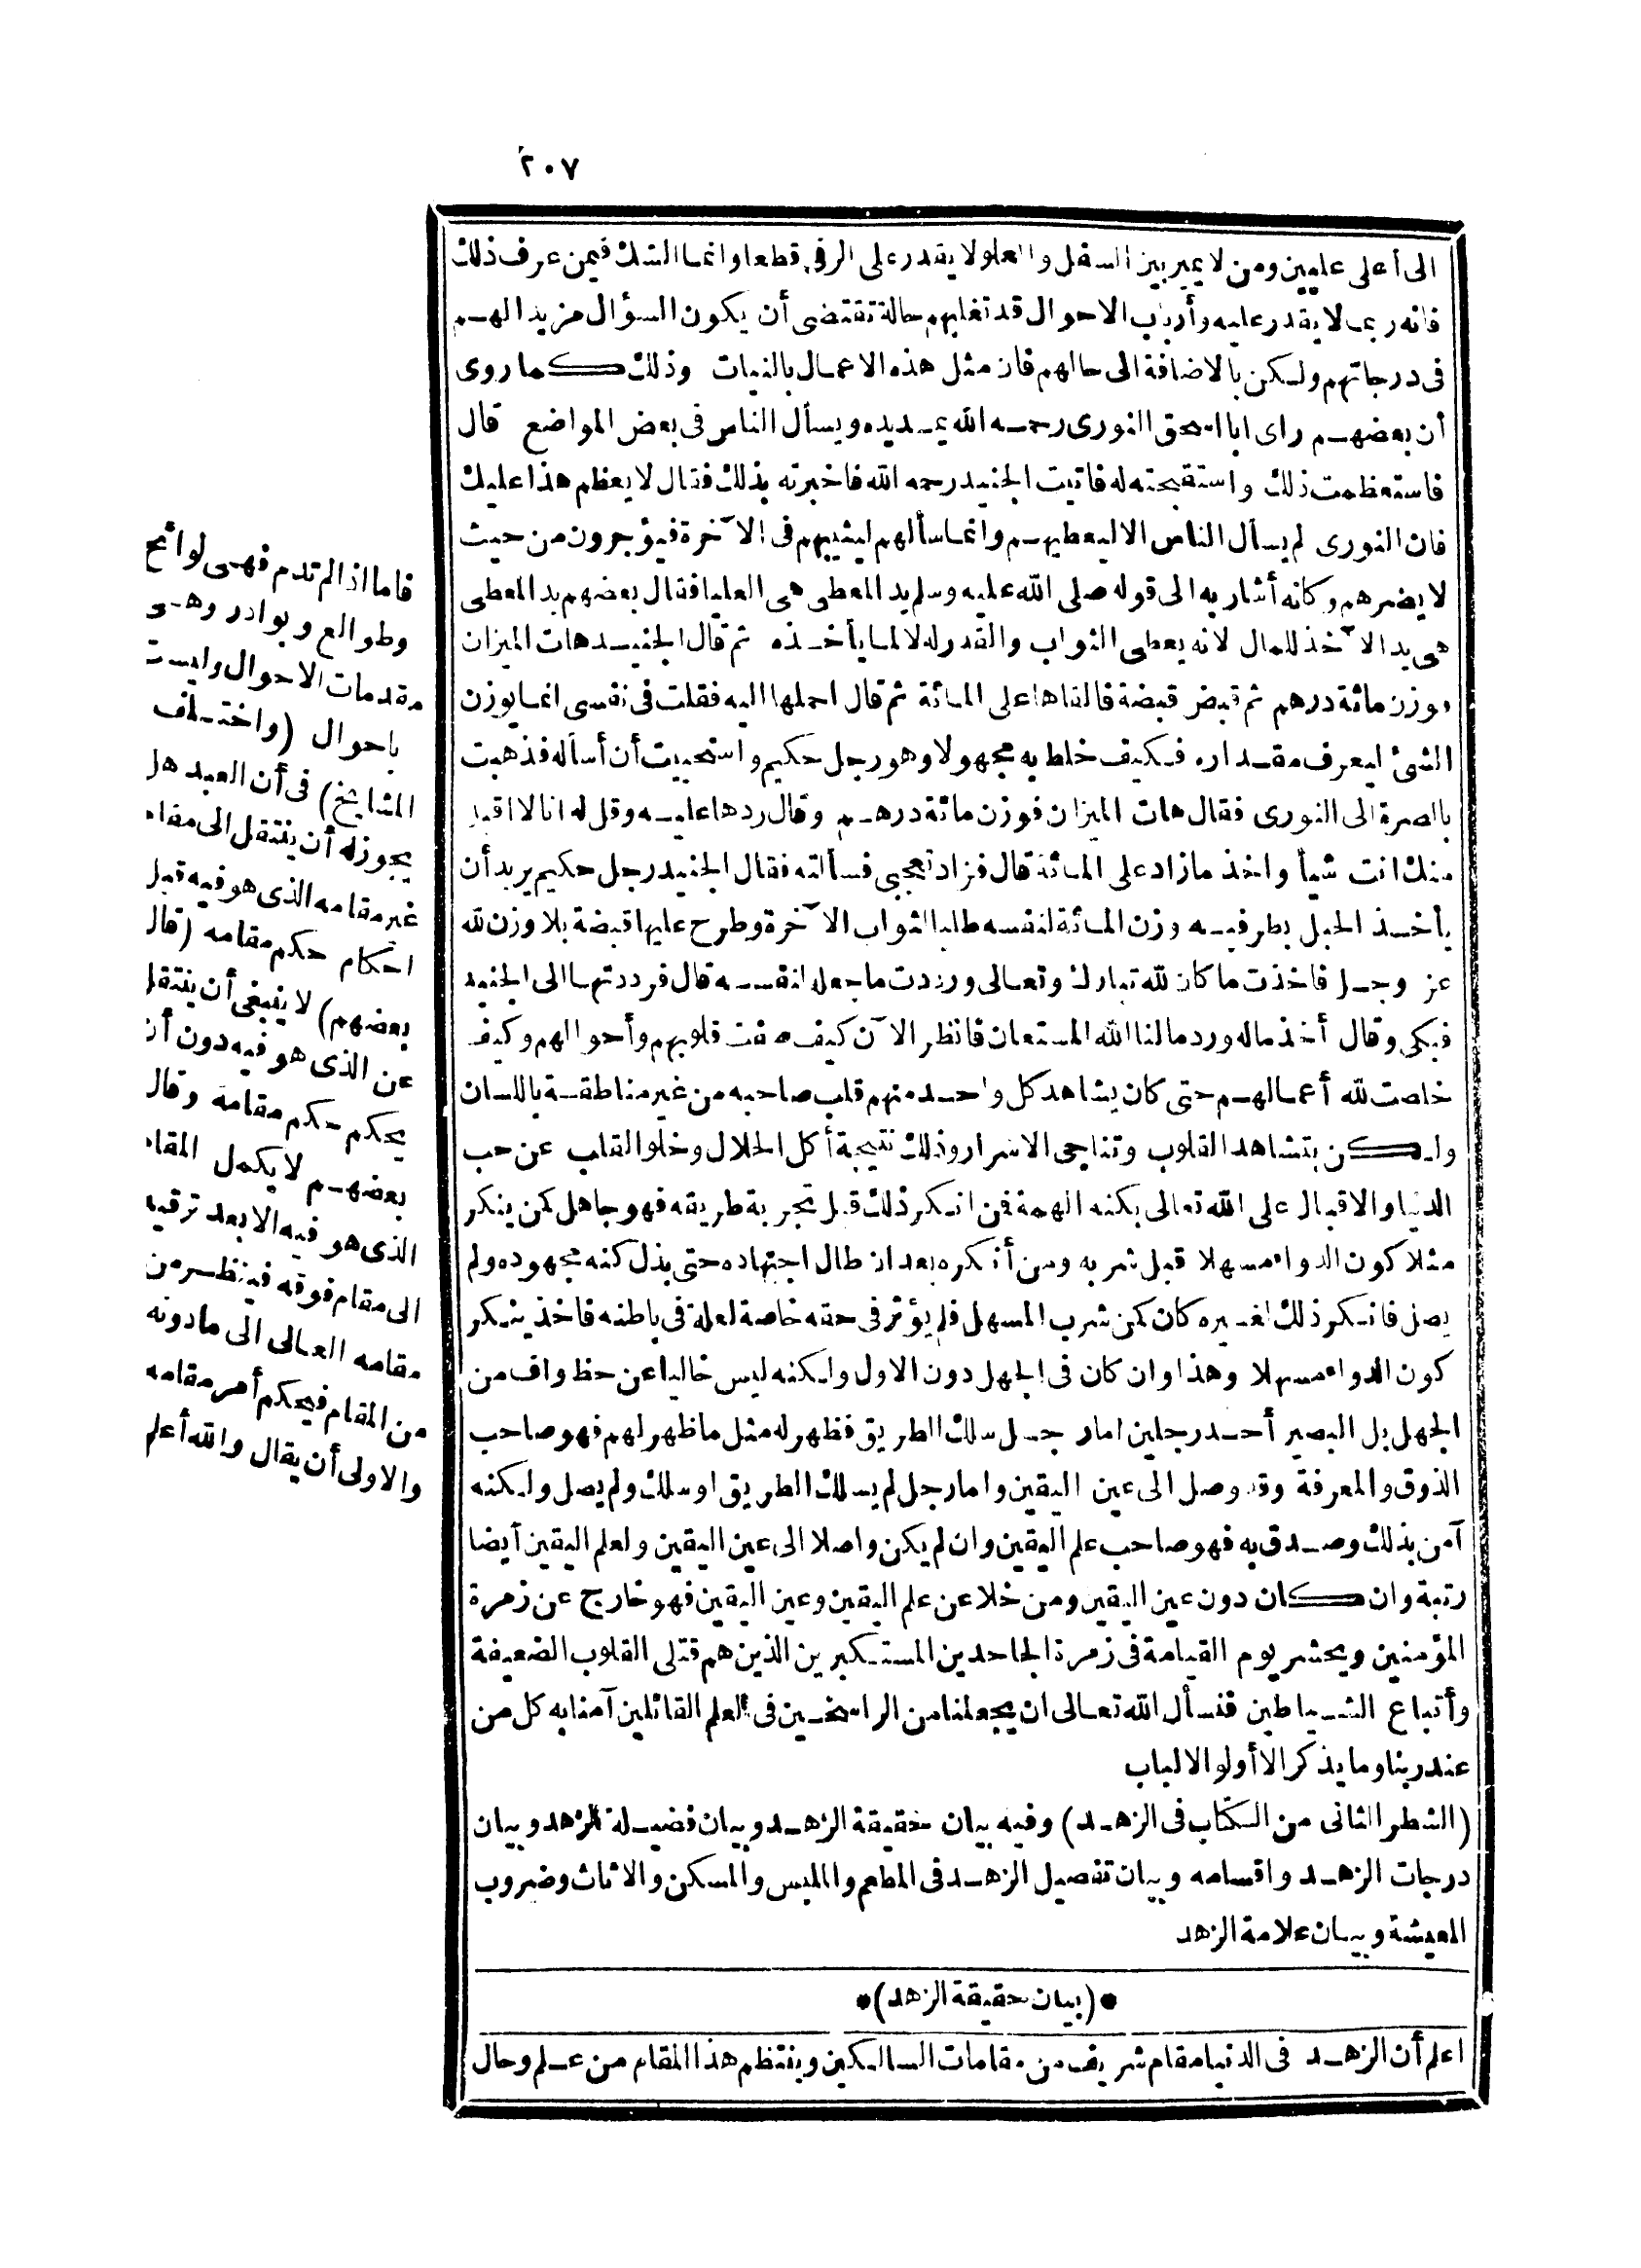 ٢٠٧
الى أعلى عليين ومن لا يميز بين السفل والعلو لا يقدر على الرقى قطعا وانما الشك فيمن عرف ذلك
فانه ربما لا يقدر عليه وأرباب الاحوال قد تغلبهم حالة تقتضى أن يكون السؤال مزيدا لهم
فى درجاتهم ولكن بالاضافة الى حالهم فان مثل هذه الاعمال بالنيات وذلك كما روى
أن بعضهم راى ابا اسحق النورى رحمه الله يمد يده ويسأل الناس فى بعض المواضع قال
فاستعظمت ذلك واستقبحته له فاتيت الجنيد رحمه الله فاخبرته بذلك فقال لا يعظم هذا عليك
فان النورى لم يسأل الناس الا ليعطيهم وانما سألهم ليثيبهم فى الآخرة فيؤجرون من حيث
لا يضرهم وكانه أشار به الى قوله صلى الله عليه وسلم يد المعطى هى العليا فقال بعضهم يد المعطى
هى يد الآخذ للمال لانه يعطى الثواب والقدر له لا لما يأخذه ثم قال الجنيد هات الميزان
فوزن مائة درهم ثم قبض قبضة فالقاها على المائة ثم قال احملها اليه فقلت فى نفسى انما يوزن
الشئ ليعرف مقداره فكيف خلط به مجهولا وهو رجل حكيم واستحييت أن أسأله فذهبت
بالصرة الى النورى فقال هات الميزان فوزن مائة درهم وقال ردها عليه وقل له انا لا اقبل
منك انت شيأ واخذ ما زاد على المائة قال فزاد تعجبى فسألته فقال الجنيد رجل حكيم يريد أن
يأخذ الحبل بطرفيه وزن المائة لنفسه طلبا لثواب الآخرة وطرح عليها قبضة بلا وزن لله
عز وجل فاخذت ما كان لله تبارك وتعالى ورددت ما جعله لنفسه قال فرددتها الى الجنيد
فبكى وقال أخذ ماله ورد مالنا الله المستعان فانظر الآن كيف صفت قلوبهم وأحوالهم وكيف
خلصت لله أعمالهم حتى كان يشاهد كل واحد منهم قلب صاحبه من غير مناطقة باللسان
ولكن بتشاهد القلوب وتناجى الاسرار وذلك نتيجة أكل الحلال وخلو القلب عن حب
الدنيا والاقبال على الله تعالى بكنه الهمة فمن انكر ذلك قبل تجربة طريقه فهو جاهل كمن ينكر
مثلا كون الدواء مسهلا قبل شربه ومن أنكره بعد ان طال اجتهاده حتى بذل كنه مجهوده ولم
يصل فانكر ذلك لغيره كان كمن شرب المسهل فلم يؤثر فى حقه خاصة لعلة فى باطنه فاخذ ينكر
كون الدواء مسهلا وهذا وان كان فى الجهل دون الاول ولكنه ليس خاليا عن حظ واف من
الجهل بل البصير أحد رجلين اما رجل سلك الطريق فظهر له مثل ما ظهر لهم فهو صاحب
الذوق والمعرفة وقد وصل الى عين اليقين واما رجل لم يسلك الطريق او سلك ولم يصل ولكنه
آمن بذلك وصدق به فهو صاحب علم اليقين وان لم يكن واصلا الى عين اليقين ولعلم اليقين أيضا
رتبة وان كان دون عين اليقين ومن خلا عن علم اليقين وعين اليقين فهو خارج عن زمرة
المؤمنين ويحشر يوم القيامة فى زمرة الجاحدين المستكبرين الذين هم قتلى القلوب الضعيفة
وأتباع الشياطين فنسأل الله تعالى ان يجعلنا من الراسخين فى العلم القائلين آمنا به كل من
عند ربنا وما يذكر الا أولو الالباب
(الشطر الثانى من الكتاب فى الزهد) وفيه بيان حقيقة الزهد وبيان فضيلة الزهد وبيان
درجات الزهد واقسامه وبيان تفصيل الزهد فى المطعم والملبس والمسكن والاثاث وضروب
المعيشة وبيان علامة الزهد
*(بيان حقيقة الزهد)*
اعلم أن الزهد فى الدنيا مقام شريف من مقامات السالكين وينتظم هذا المقام من علم وحال
فاما اذا لم تدم فهى لوائح
وطوالع وبوادر وهى
مقدمات الاحوال وليست
باحوال (واختلف
المشايخ) فى أن العبد هل
يجوز له أن ينتقل الى مقام
غير مقامه الذى هو فيه قبل
احكام حكم مقامه (قال
بعضهم) لا ينبغى أن ينتقل
عن الذى هو فيه دون أن
يحكم حكم مقامه وقال
بعضهم لا يكمل المقام
الذى هو فيه الا بعد ترقيه
الى مقام فوقه فينظر من
مقامه العالى الى ما دونه
من المقام فيحكم أمر مقامه
والاولى أن يقال والله أعلم